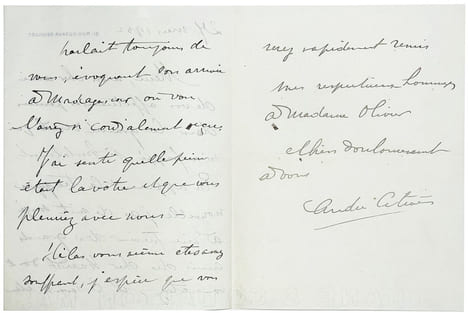 parlait toujours de
vous, évoquant son arrivée
à Madagascar où vous
l'avez si cordialement reçue
J'ai senti quelle peine
était la vôtre et que vous
pleuriez avec nous
Hélas vous même etes
souffrant, j'espère que vous
serez rapidement remis
Mes respectueux hommages
à Madame Olivier
et bien douloureusement
à vous
André Citroën